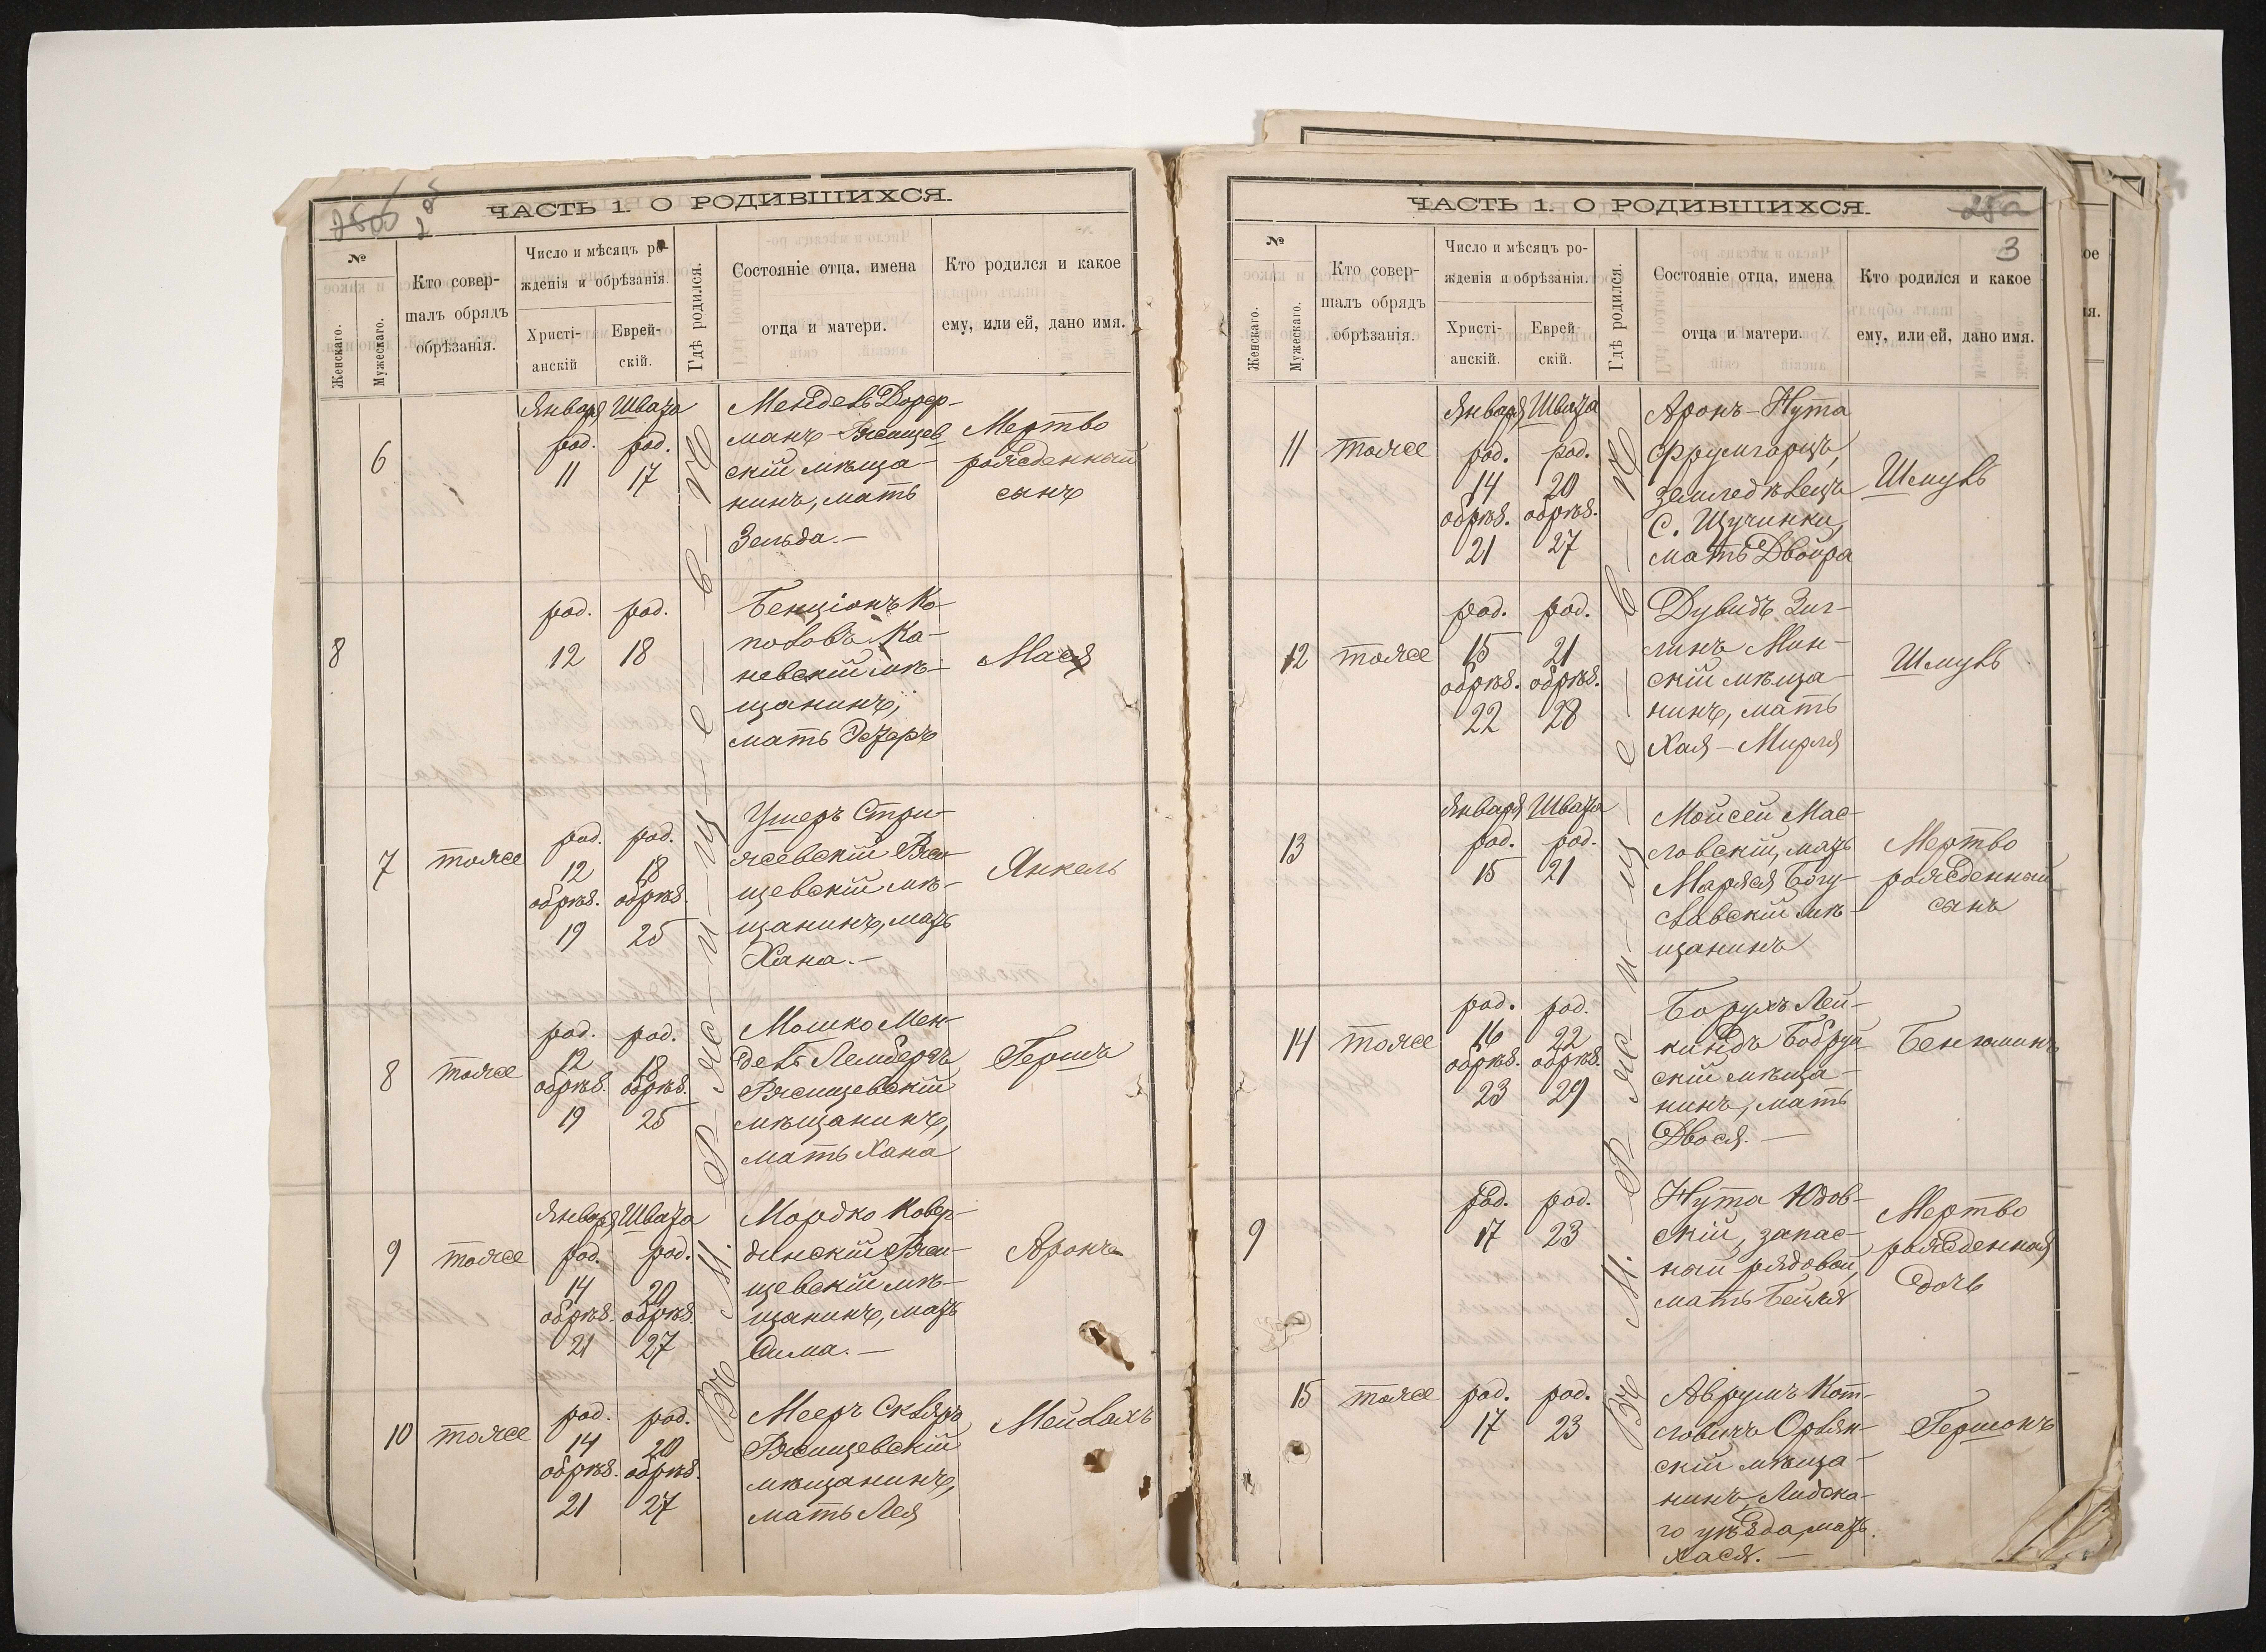 ЧАСТЬ 1. О РОДИВШИХСЯ.
2
№
Женскаго.
Мужескаго.
Кто совер-
шалъ обрядъ
обрѣзанія.
Число и мѣсяцъ ро-
жденія и обрѣзанія.
Христі-
анскій
Еврей-
скій.
Гдѣ родился.
Состояніе отца, имена
отца и матери.
Кто родился и какое
ему, или ей, дано имя.
Въ М. Р-жс-и-щ-е-в-ѣ
6
Января Швата
род. род.
11 17
Мендель
манъ-Ржищев
скій мѣща-
нинъ, мать
Зельда.-
Мертво
рожденный
сынъ
8
род. род.
12 18
Бенціонъ Ко-
половъ Ка-
невскій мѣ-
щанинъ,
мать Эстеръ
Мася
7 тоже
род. род.
12 18
обрѣз. обрѣз.
19 25
Ушеръ Стри-
жевскій Ржи-
щевскій мѣ-
щанинъ, мать
Хана.-
Янкель
8 тоже
род. род.
12 18
обрѣз. обрѣз.
19 25
Мошко Мен-
дель Лембергъ
Ржищевскій
мѣщанинъ,
мать Хана
Гершъ
9 тоже
Января Швата
род. род.
14 20
обрѣз. обрѣз.
21 27
Мордко
динскій Ржи-
щевскій мѣ-
щанинъ, мать
Сима.-
Аронъ
10 тоже
род. род.
14 20
обрѣз. обрѣз.
21 27
Мееръ Скляръ
Ржищевскій
мѣщанинъ,
мать Лея
Мейлахъ
ЧАСТЬ 1. О РОДИВШИХСЯ.
3
№
Женскаго.
Мужескаго.
Кто совер-
шалъ обрядъ
обрѣзанія.
Число и мѣсяцъ ро-
жденія и обрѣзанія.
Христі-
анскій.
Еврей-
скій.
Гдѣ родился.
Состояніе отца, имена
отца и матери.
Кто родился и какое
ему, или ей, дано имя.
Въ М. Р-жс-и-щ-е-в-ѣ
11 тоже
Января Швата
род. род.
14 20
обрѣз. обрѣз.
21 27
Аронъ-Нута
Фрумгарцъ,
земледѣлецъ
С. Щучинки,
мать Двойра
Шмуль
12 тоже
род. род.
15 21
обрѣз. обрѣз.
22 28
Дувидъ Зиг-
линъ Мин-
скій мѣща-
нинъ, мать
Хая-Мирля
Шмуль
13
Января Швата
род. род.
15 21
Мойсей Мас-
ловскій, мать
Маряся Богу-
славскій мѣ-
щанинъ
Мертво
рожденный
сынъ
14 тоже
род. род.
16 22
обрѣз. обрѣз.
23 29
Борухъ Лей-
киндъ Бобруй-
скій мѣща-
нинъ, мать
Двося.-
Беньминъ
9
род. род.
17 23
Нута Юдов-
скій, запас-
ный рядовой,
мать Бейля
Мертво
рожденная
дочь
15 тоже
род. род.
17 23
Аврумъ Кот-
ловичъ Орлян-
скій мѣща-
нинъ, Лидска-
го уѣзда, мать
Хася.-
Гершонъ